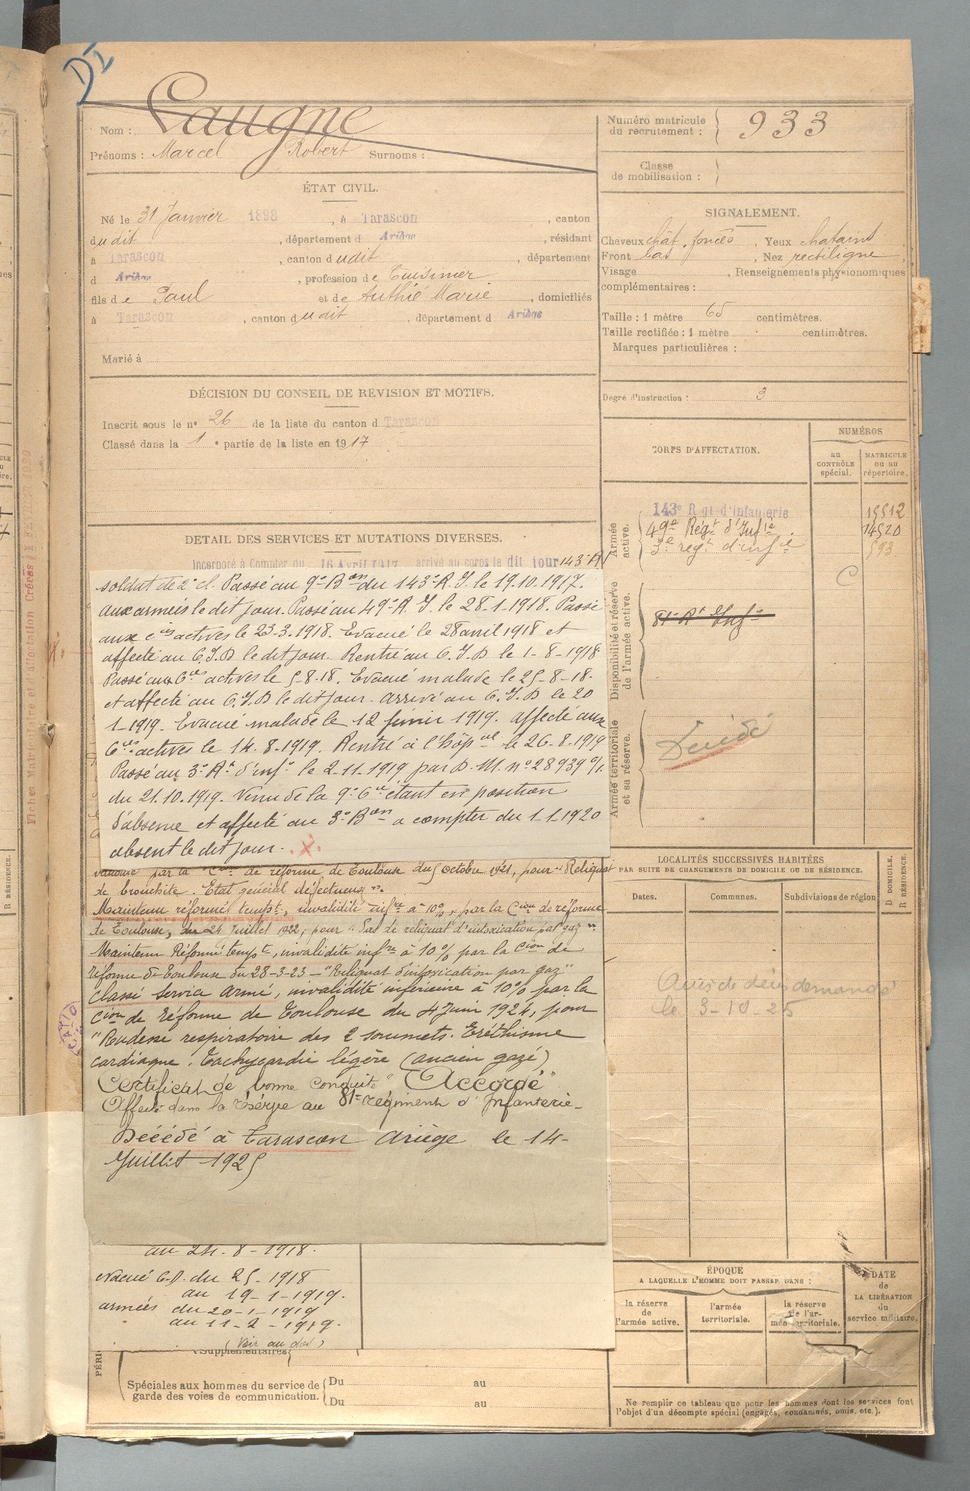 DI
Nom : Laugne
Prénoms : Marcel Robert Surnoms :
Numéro matricule du recrutement : 933
Classe de mobilisation :
ÉTAT CIVIL.
Né le 31 Janvier 1898, à Tarascon, canton
dudit, département d Ariège, résidant
à Tarascon, canton dudit, département
d Ariège, profession de Cuisinier
fils de Paul et de Authié Marie, domiciliés
à Tarascon, canton dudit, département d Ariège
Marié à
SIGNALEMENT.
Cheveux chât. foncés, Yeux chatains
Front bas, Nez rectiligne,
Visage , Renseignements physionomiques
complémentaires :
Taille : 1 mètre 65 centimètres.
Taille rectifiée : 1 mètre centimètres.
Marques particulières :
Degré d'instruction : 3
DÉCISION DU CONSEIL DE REVISION ET MOTIFS.
Inscrit sous le n° 26 de la liste du canton d Tarascon
Classé dans la 1e partie de la liste en 1917
CORPS D'AFFECTATION.
NUMÉROS
au CONTRÔLE spécial.
MATRICULE ou au répertoire.
Armée active.
143e Rgt d'Infanterie
49e Régt d'Infie 14520
3e regt d'infie 593
C
Disponibilité et réserve de l'armée active.
81e Rt Inf
Armée territoriale et sa réserve.
Décédé
DETAIL DES SERVICES ET MUTATIONS DIVERSES.
Incorporé à Compter du 16 Avril 1917 arrivé au corps le dit jour 143e RI
soldat de 2e cl. Passé au 9e Bon du 143e R.I. le 19.10.1917.
aux armées le dit jour. Passé au 49e R.I. le 28.1.1918. Passé
aux cies actives le 23.3.1918. Evacué le 28 avril 1918 et
affecté au C.I.D le dit jour. Rentré au C.I.D le 1-8-1918
Passé aux Cies actives le 5-8-18. Evacué malade le 25-8-18.
et affecté au C.I.D le dit jour. arrivé au C.I.D le 20
1-1919. Evacué malade le 12 février 1919. affecté aux
Cies actives le 14.8.1919. Rentré à l'hôpal le 26.8.1919
Passé au 3e Rt d'infie le 2.11.1919 par D.M. n° 28939
du 21.10.1919. Venu de la 9e Cie étant en position
d'absence et affecté au 3e Bon a compter du 1.1.1920
absent le dit jour. X
par la Cion de réforme de Toulouse du 5 octobre 1921, pour "Reliquat
de bronchite. Etat général défectueux".
Maintenu réformé tempre, invalidité infre à 10%, par la Cion de réforme
de Toulouse, du 24 Juillet 1922, pour "Pas de reliquat d'intoxication par gaz"
Maintenu Réformé tempre, invalidité infre à 10% par la Cion de
réforme de Toulouse du 28-3-23 — "Reliquat d'intoxication par gaz"
Classé Service Armé, invalidité inférieure à 10% par la
Cion de Réforme de Toulouse du 4 Juin 1924, pour
"Rudesse respiratoire des 2 sommets. Eréthisme
cardiaque. Tachycardie légère (ancien gazé)
Certificat de bonne conduite "Accordé"
Affecté dans la Réserve au 81e régiment d'Infanterie
Décédé à Tarascon Ariège le 14
Juillet 1925
au 24-8-1918.
évacué C.D. du 25-1918
au 19-1-1919.
armées du 20-1-1919
au 11-2-1919.
(Voir au dos)
Supplémentaires
Spéciales aux hommes du service de garde des voies de communication.
Du au
Du au
LOCALITÉS SUCCESSIVES HABITÉES
PAR SUITE DE CHANGEMENTS DE DOMICILE OU DE RÉSIDENCE.
Dates. Communes. Subdivisions de région
D. DOMICILE.
R. RÉSIDENCE.
Avis de décès demandé
le 3-10-25
ÉPOQUE
A LAQUELLE L'HOMME DOIT PASSER DANS :
la réserve de l'armée active.
l'armée territoriale.
la réserve de l'armée territoriale.
DATE de LA LIBÉRATION du service militaire.
Ne remplir ce tableau que pour les hommes dont les services font
l'objet d'un décompte spécial (engagés, condamnés, omis, etc.).